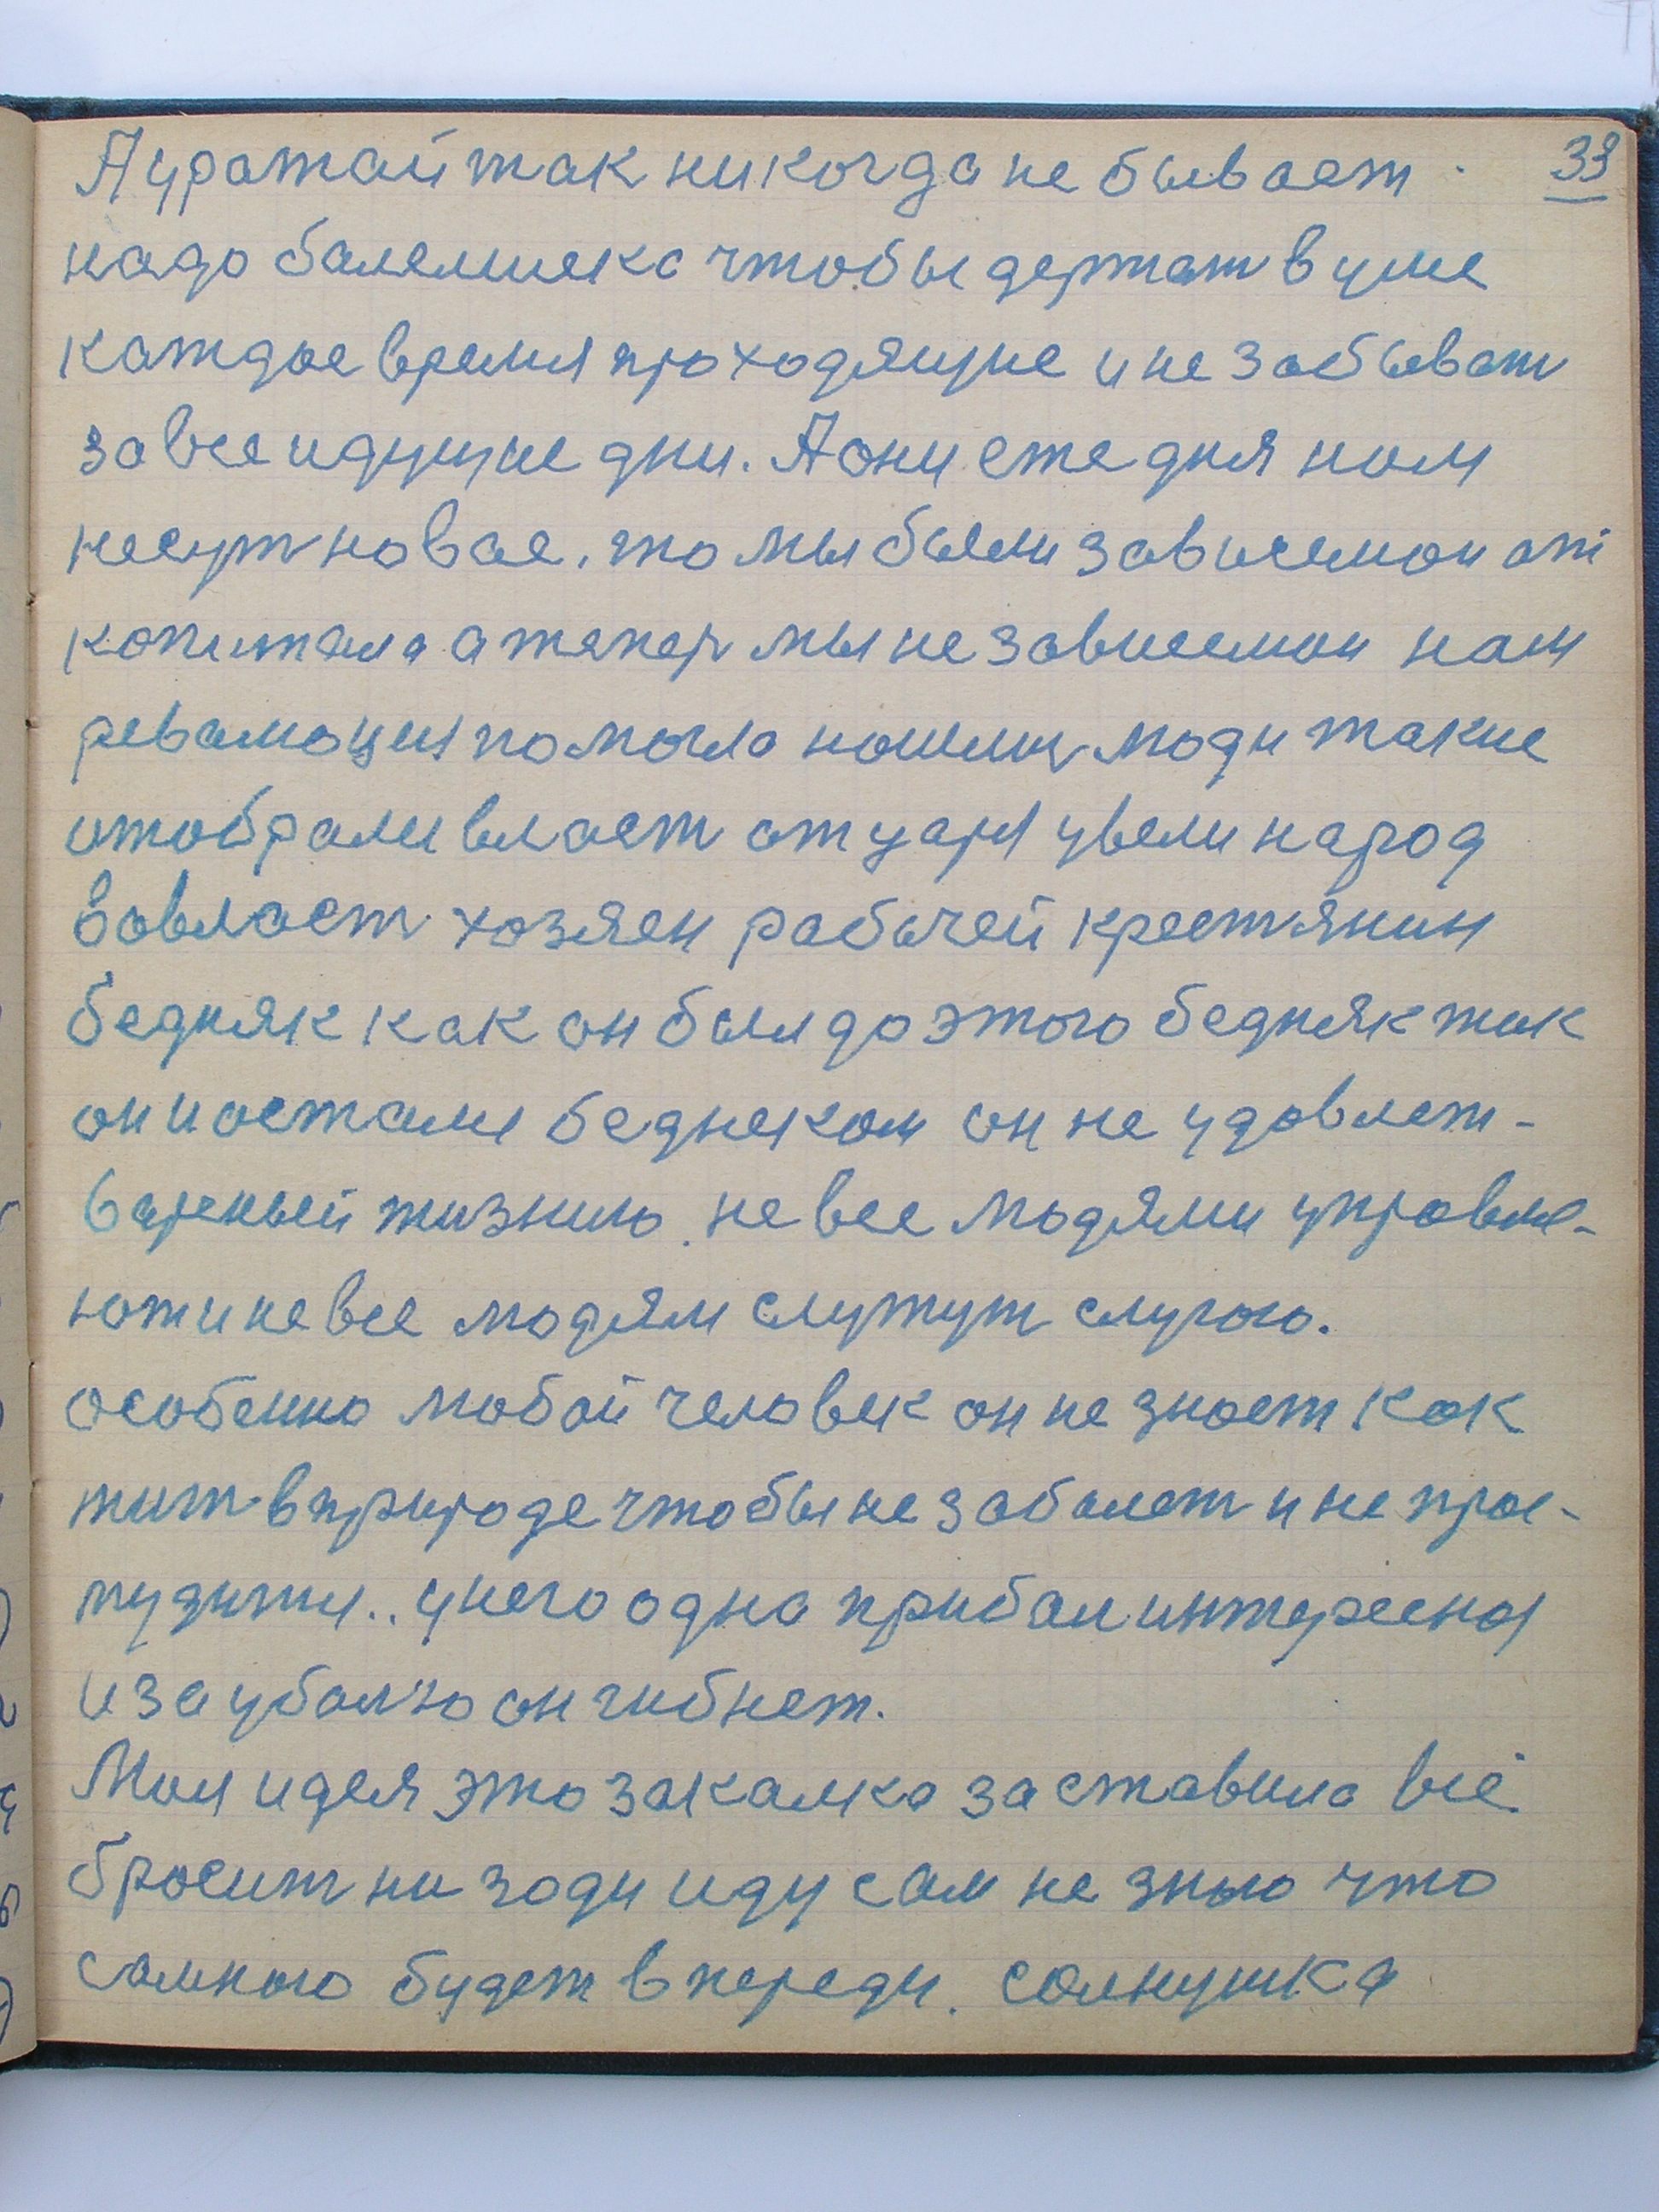 А уратай так никогда не бывает. 33
надо балемнека чтобы держат в уме
каждое время проходящие и не забыват
за все идущие дни. А они ежедня нам
несут новае. то мы были зависемои от
копитала а тепер мы не зависемои нам
революция помогла нашими люди такие
отобрали власт от царя увели народ
вовласт хозяен рабочей крестянин
бедняк как он был до этого бедняк так
он и остался беднеком он не удовлет-
вареный жизнию. не все людями управля-
ют и не все людям служут слугою.
особенно любой человек он не знает как
жит в природе чтобы не заболет и не прос-
тудится.. у него одна прибал интересная
и за убалю он гибнет.
Моя идея это закалка заставила всё
бросит на ходи иду сам не знаю что
самною будет в переди. солнушка